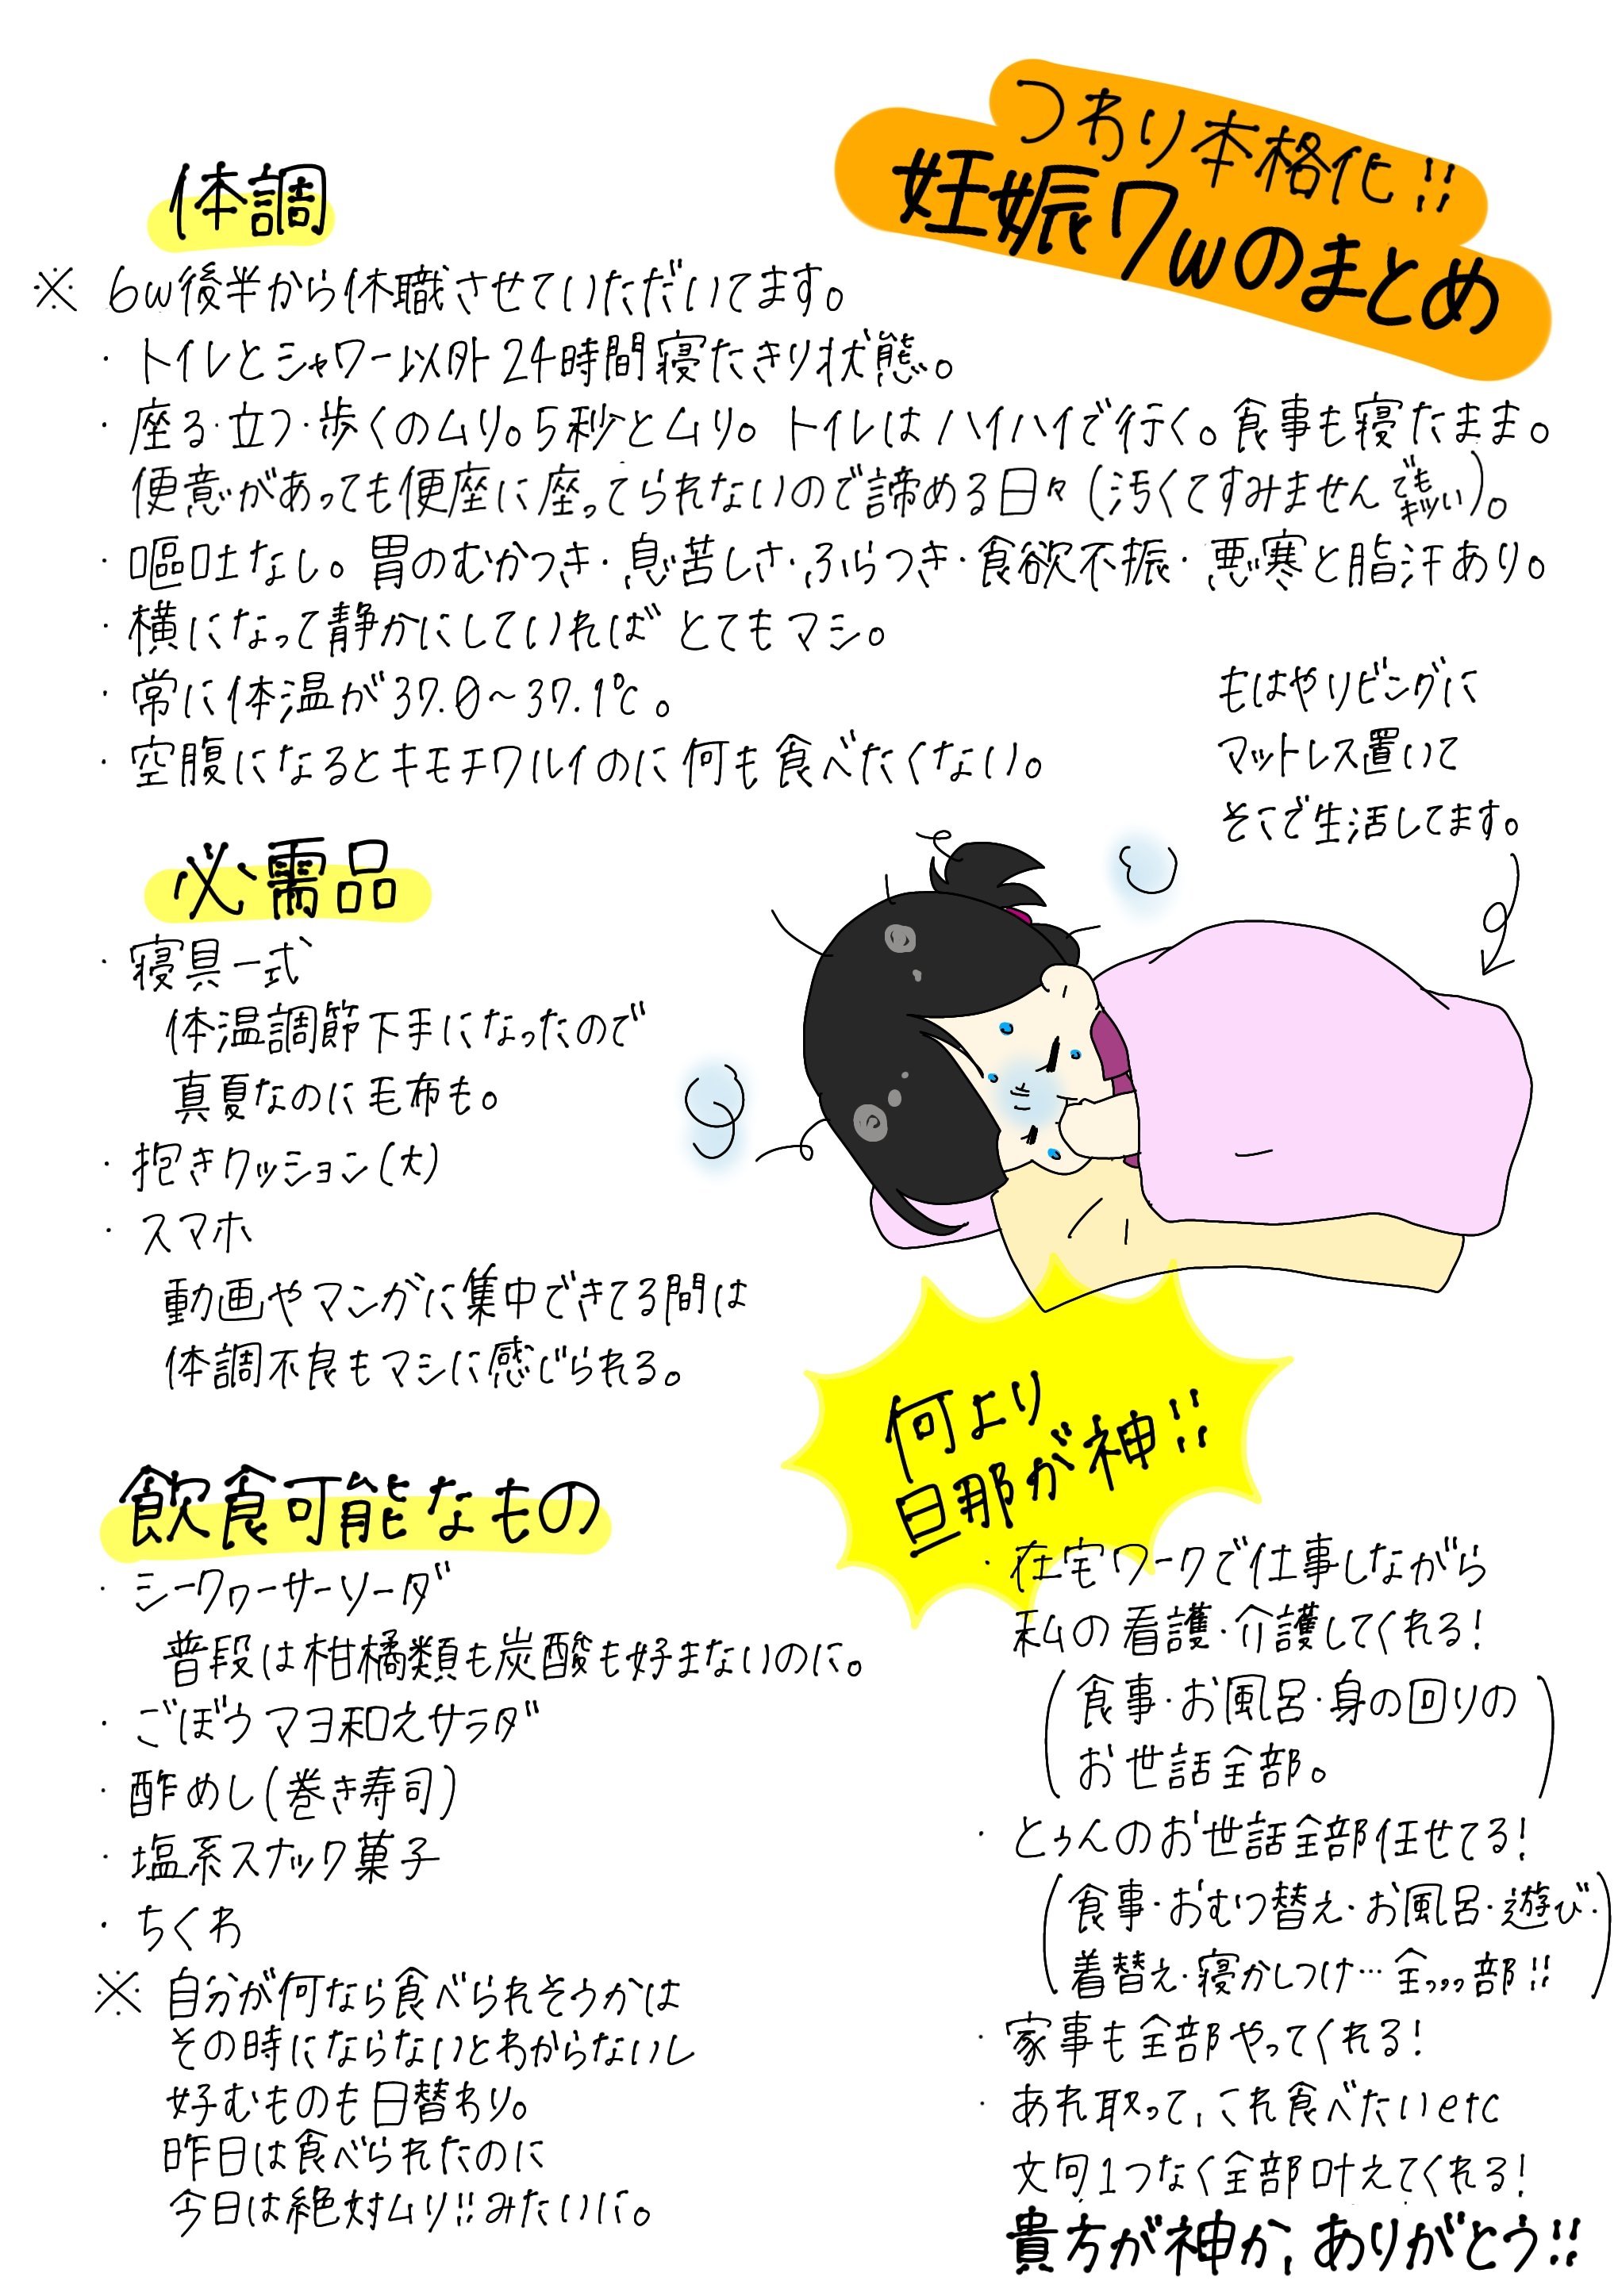 つわり本格化!!
妊娠7wのまとめ
体調
※ 6w後半から休職させていただいてます。
・トイレとシャワー以外24時間寝たきり状態。
・座る・立つ・歩くのムリ。5秒とムリ。トイレはハイハイで行く。食事も寝たまま。
便意があっても便座に座ってられないので諦める日々(汚くてすみませんでもキツい)。
・嘔吐なし。胃のむかつき・息苦しさ・ふらつき・食欲不振・悪寒と脂汗あり。
・横になって静かにしていればとてもマシ。
・常に体温が37.0~37.1℃。
・空腹になるとキモチワルイのに何も食べたくない。
もはやリビングに
マットレス置いて
そこで生活してます。
必需品
・寝具一式
体温調節下手になったので
真夏なのに毛布も。
・抱きクッション(大)
・スマホ
動画やマンガに集中できてる間は
体調不良もマシに感じられる。
飲食可能なもの
・シークワーサーソーダ
普段は柑橘類も炭酸も好まないのに。
・ごぼうマヨ和えサラダ
・酢めし(巻き寿司)
・塩系スナック菓子
・ちくわ
※ 自分が何なら食べられそうかは
その時にならないとわからないし
好むものも日替わり。
昨日は食べられたのに
今日は絶対ムリ!!みたいに。
何より
旦那が神!!
・在宅ワークで仕事しながら
私の看護・介護してくれる!
(食事・お風呂・身の回りの
お世話全部。)
・とぅんのお世話全部任せてる!
(食事・おむつ替え・お風呂・遊び・
着替え・寝かしつけ…全っっっ部!!)
・家事も全部やってくれる!
・あれ取って、これ食べたいetc
文句1つなく全部叶えてくれる!
貴方が神か、ありがとう!!